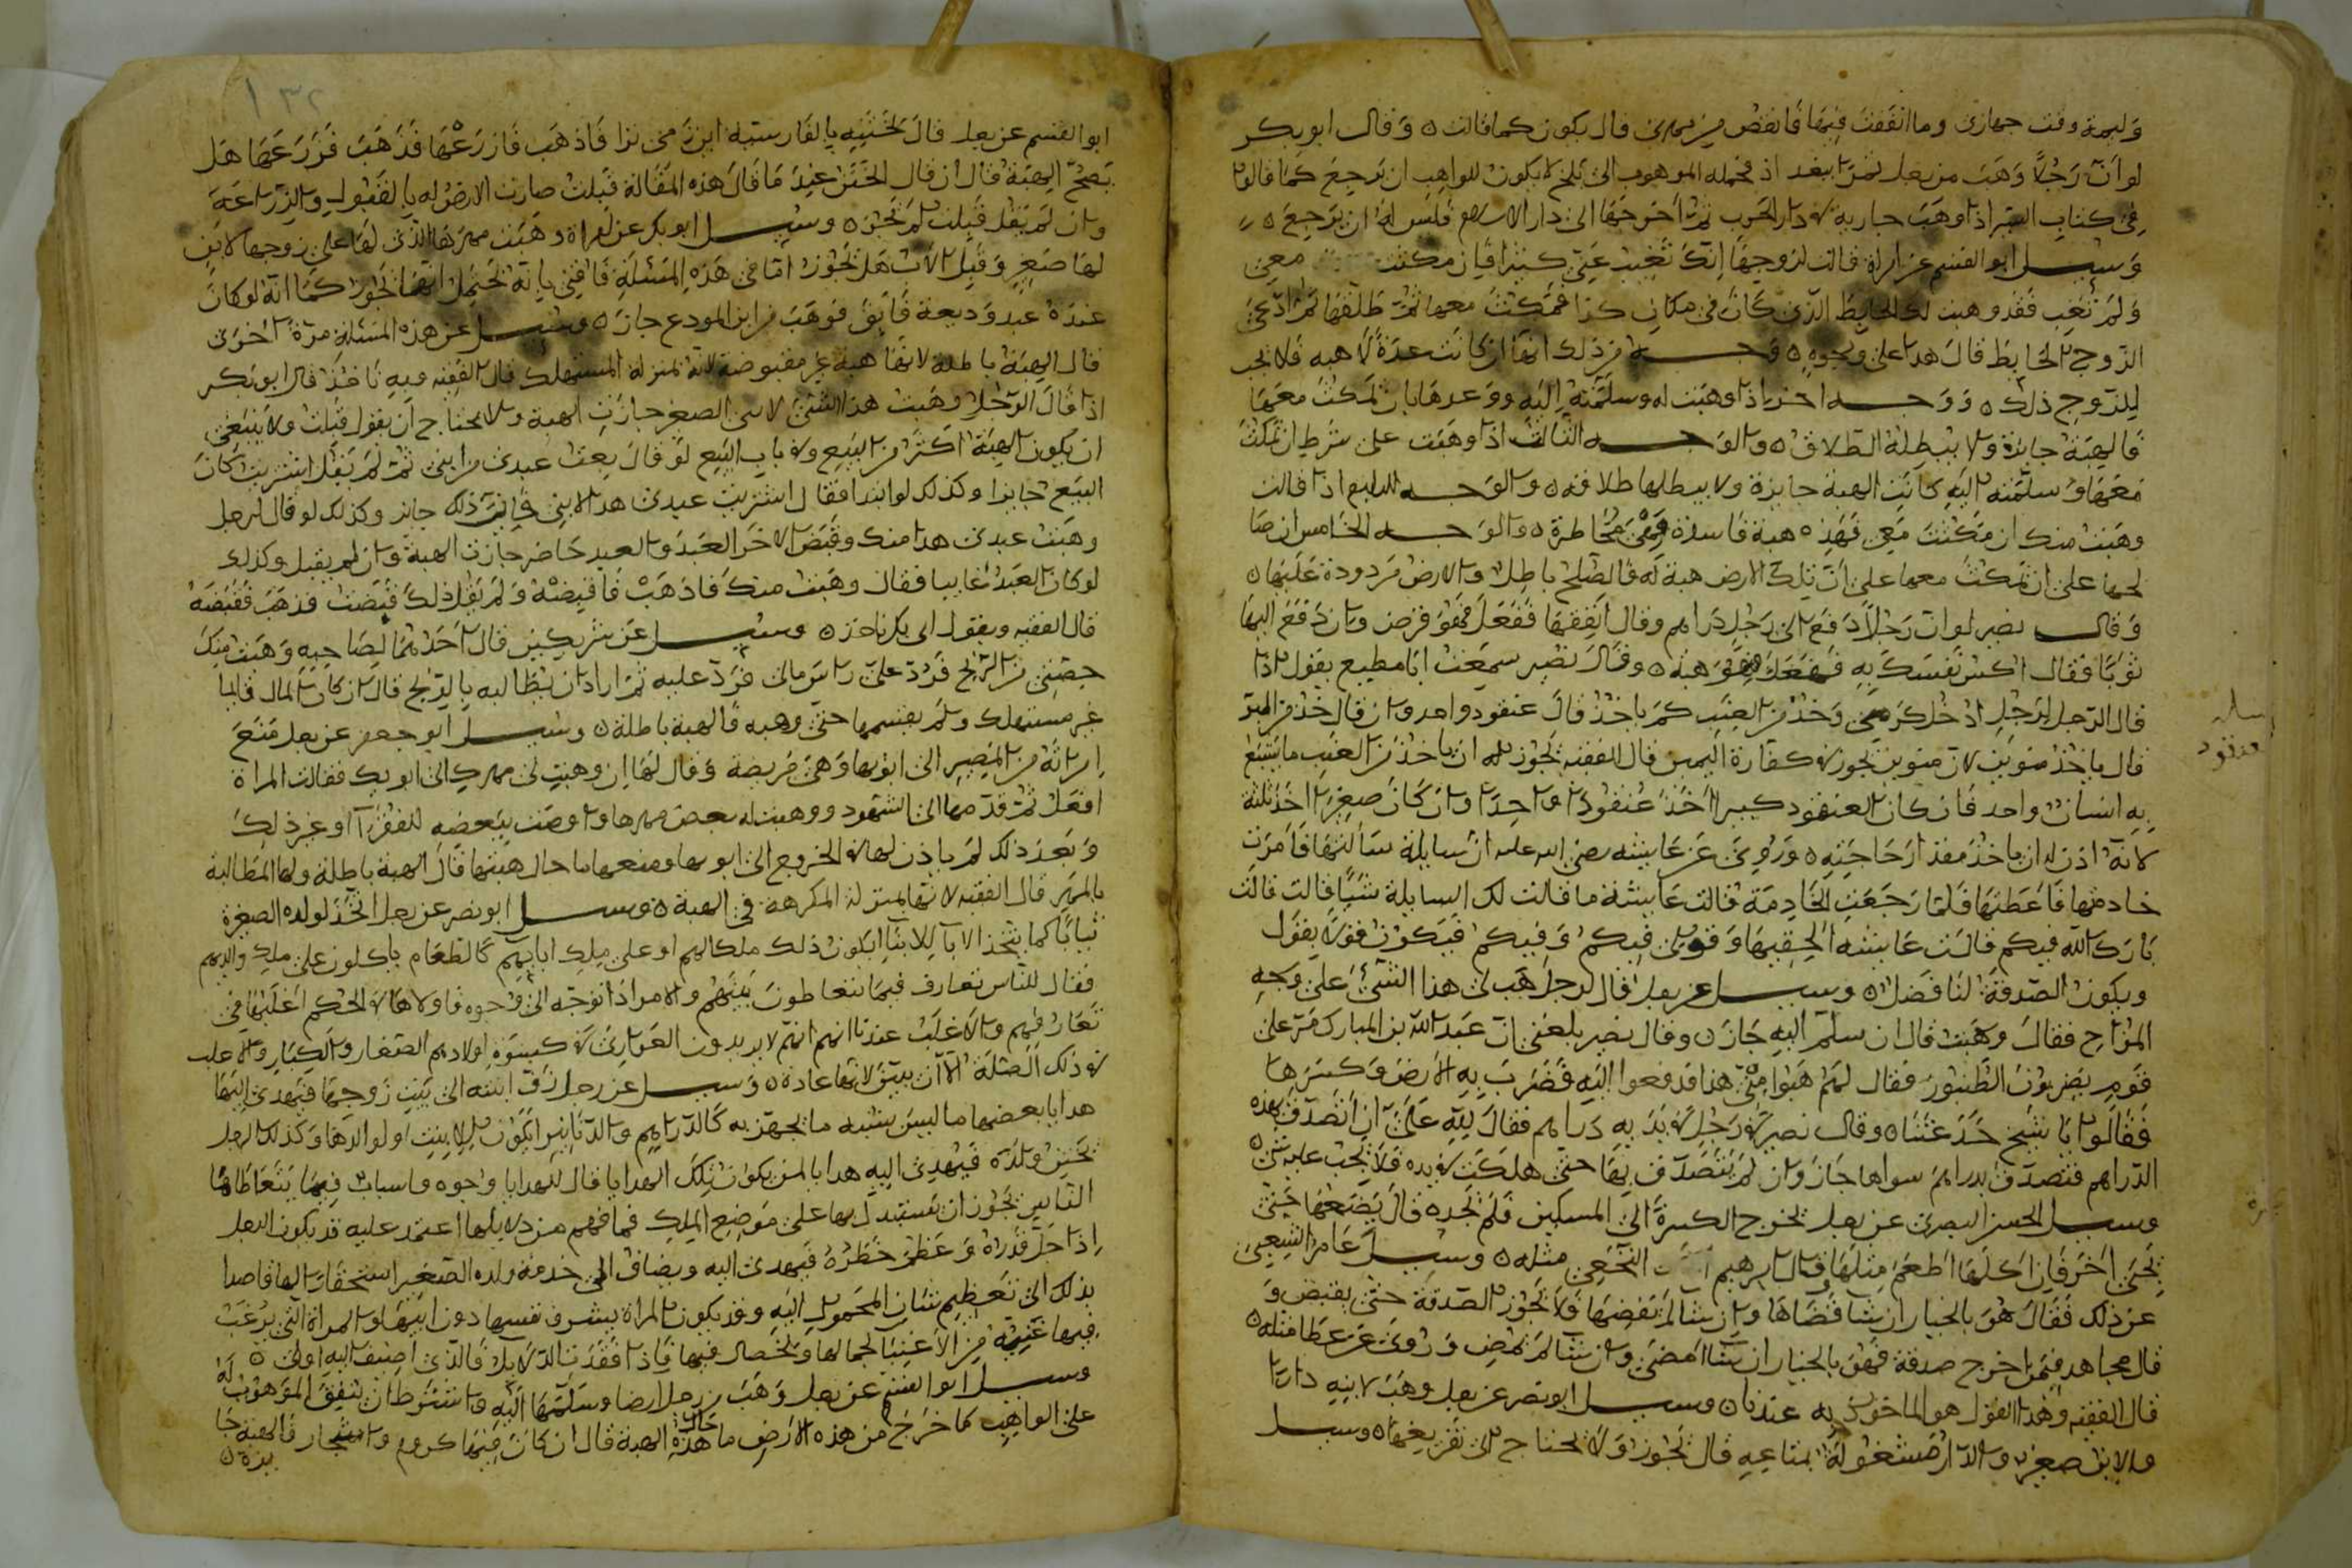 وليمة وقت جهازى وما انفقت فيها فانقص من مهرى قال يكون كما قالت ه وقال ابو بكر
لو ان رجلا وهب من رجل ثمرا ببغداذ فحمله الموهوب الى بلخ لا يكون للواهب ان يرجع كما قالوا
فى كتاب السير اذا وهب جارية فى دار الحرب ثم اخرجها الى دار الاسلام فليس له ان يرجع ه
وسيل ابو القسم عن امراة قالت لزوجها انك تغيب عنى كثيرا فان مكثت معى
ولم تغب فقد وهبت لك الحايط الذى كان فى مكان كذا فمكث معها ثم طلقها ثم ادعى
الزوج الحايط قال هذا على وجوه ه وجه من ذلك انها ان كانت عدة لا هبه فلا يجب
للزوج ذلك ه ووجه اخر اذا وهبت له وسلمته اليه ووعدها بان يمكث معها
فالهبة جايزة ولا يبطله الطلاق ه والوجه الثالث اذا وهبت على شرط ان يمكث
معها وسلمته اليه كانت الهبة جايزة ولا يبطلها طلاقه ه والوجه الرابع اذا قالت
وهبت منك ان مكثت معى فهذه هبة فاسدة وهى مخاطرة ه والوجه الخامس ان صا
لحها على ان يمكث معها على ان تلك الارض هبة له فالصلح باطل والارض مردودة عليها ه
وقال نصير لو ان رجلا دفع الى رجل دراهم وقال انفقها ففعل فهو قرض وان دفع اليها
ثوبا فقال اكس نفسك به ففعل فهو هبة ه وقال نصير سمعت ابا مطيع يقول اذا
قال الرجل لرجل ادخل كرمى وخذ من العنب كم ياخذ قال عنقود واحد وان قال خذ من البر
قال ياخذ منوين لان منوين تجوز فى كفارة اليمين قال الفقيه يجوز له ان ياخذ من العنب ما يشبع
به انسان واحد فان كان العنقود كبيرا اخذ عنقودا واحدا وان كان صغيرا اخذ ثلثة
لانه اذن له ان ياخذ مقدار حاجته ه وروى عن عايشه رضى الله عليه ان سايلة سالتها فامرت
خادمها فاعطتها فلما رجعت الخادمة قالت عايشة ما قالت لك السايلة شيا قالت قالت
بارك الله فيكم قالت عايشه الحقيها وقولى فيكم وفيكم فيكون قولا بقول
ويكون الصدقة لنا فضلا ه وسيل عن رجل قال لرجل هب لى هذا الشئ على وجه
المزاح فقال وهبت قال ان سلم اليه جاز ه وقال نصير بلغنى ان عبد الله بن المبارك مر على
قوم يضربون الطنبور فقال لهم هبوا منى هذا فدفعوا اليه فضرب به الارض وكسرها
فقالوا يا شيخ خدعتنا ه وقال نصير فى رجل فى يديه دراهم فقال لله على ان اتصدق بهذه
الدراهم فتصدق بدراهم سواها جاز وان لم يتصدق بها حتى هلكت فى يده فلا يجب عليه شئ ه
وسيل الحسن البصرى عن رجل يخرج الكسرة الى المسكين فلم يجده قال يضعها حتى
يجئ اخر فان اكلها اطعم مثلها وقال ابرهيم النخعى مثله ه وسيل عامر الشعبى
عن ذلك فقال هو بالخيار ان شا قضاها وان شا لم يقضها فلا تجوز الصدقة حتى يقبض و
قال مجاهد فيمن اخرج صدقة فهو بالخيار ان شا امضى وان شا لم يمض وروى عن عطا مثله ه
قال الفقيه وهذا القول هو الماخوذ به عندنا ه وسيل ابو نصر عن رجل وهب لابنه دارا
والابن صغير والدار مشغولة بمتاعه قال تجوز ولا يحتاج الى تفريغها ه وسيل
عنقود
١٣٢
ابو القسم عن رجل قال لختنه بالفارسية اين زمى ترا فاذهب فازرعها فذهب فزرعها هل
تصح الهبة قال ان قال الختن عند ما قال هذه المقالة قبلت صارت الارض له بالقبول والزراعة
وان لم يقل قبلت لم تجز ه وسيل ابو بكر عن امراة وهبت مهرها الذى لها على زوجها لابن
لها صغير وقبل الاب هل تجوز اما فى هذه المسئلة فاقنى بانه تحتمل انها تجوز كما انه لو كان
عنده عبد وديعة فابق فوهب من ابن المودع جاز ه وسيل عن هذه المسئلة مرة اخرى
قال الهبة باطلة لانها هبة غير مقبوضة لانه بمنزلة المستهلك قال الفقيه وبه ناخذ قال ابو بكر
اذا قال الرجل وهبت هذا الشئ لابنى الصغير جازت الهبة ولا يحتاج ان يقول قبلت ولا ينبغى
ان يكون الهبة اكثر من البيع وفى باب البيع لو قال بعت عبدى من ابنى ثم لم يقل اشتريت كان
البيع جايزا وكذلك لو ابتدا فقال اشتريت عبدى هذا لابنى فان ذلك جائز وكذلك لو قال لرجل
وهبت عبدى هذا منك وقبض الاخر العبد والعبد حاضر جازت الهبة وان لم يقبل وكذلك
لو كان العبد غايبا فقال وهبت منك فاذهب فاقبضه ولم يقل ذلك قبضت فذهب فقبضه
قال الفقيه وبقول ابى بكر ناخذ ه وسيل عن شريكين قال احدهما لصاحبه وهبت منك
حصتى من الربح فرد على راس مالى فرد عليه ثم اراد ان يطالبه بالربح قال ان كان المال قايما
غير مستهلك ولم يقسمها حتى وهبه فالهبة باطلة ه وسيل ابو جعفر عن رجل منع
امراته من المصير الى ابويها وهى مريضة وقال لها ان وهبت لى مهرك الى ابويك فقالت المراة
افعل ثم قدمها الى الشهود ووهبت له بعض مهرها واوصت ببعضه للفقرا او غير ذلك
وبعد ذلك لم ياذن لها فى الخروج الى ابويها ومنعها ما حال هبتها قال الهبة باطلة ولها المطالبة
بالمهر قال الفقيه لانها بمنزلة المكرهة فى الهبة ه وسيل ابو نصر عن رجل اتخذ لولده الصغيرة
ثيابا كما يتخذ الابا للابنا ايكون ذلك ملكا لهم او على ملك ابايهم كالطعام ياكلون على ملك والدهم
فقال للناس تعارف فيما يتعاطون بينهم والامر اذا توجه الى وجوه فاولاها فى الحكم اغلبها فى
تعارفهم والاغلب عندنا انهم لا يريدون العوارى فى كسوة اولادهم الصغار والكبار والاغلب
فى ذلك الصلة الا ان يبين لانها عادة ه وسيل عن رجل زف ابنته الى بيت زوجها فيهدى اليها
هدايا بعضها ما ليس يشبه ما يجهز به كالدراهم والدنانير ايكون للابنت او لوالدها وكذلك الرجل
يختن ولده فيهدى اليه هدايا لمن يكون تلك الهدايا قال للهدايا وجوه واسباب فيما يتعاطاها
الناس يجوز ان يستبدل بها على موضع الملك فما فهم من دلايلها اعتمد عليه قد يكون الرجل
اذا جل قدره وعظم خطره فيهدى اليه ويضاف الى خدمة ولده الصغير استحقارا لها قاصدا
بذلك الى تعظيم شان المحمول اليه وقد يكون المراة بشرف نفسها دون ابيها والمراة التى يرغب
فيها غنية من الاغنيا لجمالها وخصال فيها فاذا فقدنا الدلايل فالذى اضيف اليه اولى ه
وسيل ابو القسم عن رجل وهب من رجل ارضا وسلمها اليه واشترط ان ينفق الموهوب له
على الواهب كما خرج من هذه الارض ما حال هذه الهبة قال ان كان فيها كروم واشجار فالهبة جا
يزة ه